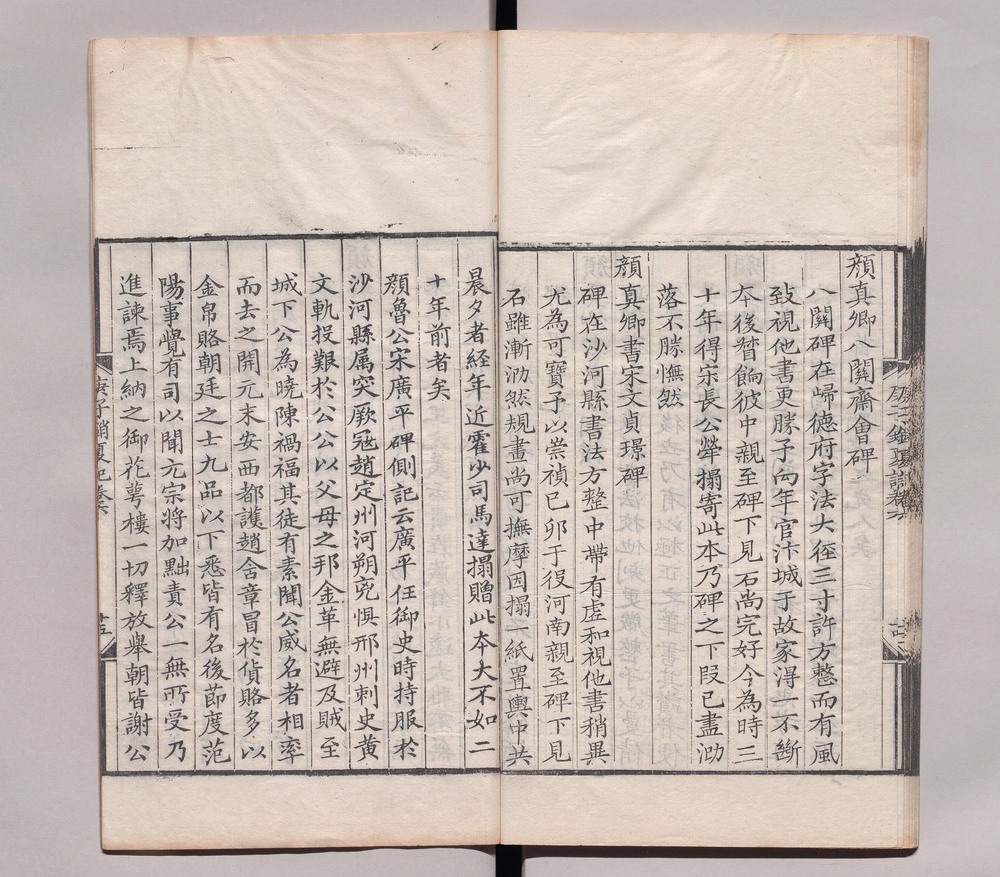 顏真卿八關齋會碑
八關碑在歸德府字法大徑三寸許方整而有風
致視他書更勝予向年官汴城于故家得一不斷
本後暫餉彼中親至碑下見石尚完好今為時三
十年得宗長公犖搨寄此本乃碑之下段已盡泐
落不勝憮然
顏真卿書宋文貞璟碑
碑在沙河縣書法方整中帶有虛和視他書稍異
尤為可寶予以崇禎己卯于役河南親至碑下見
石雖漸泐然規畫尚可撫摩因搨一紙置輿中共
晨夕者經年近霍少司馬達搨贈此本大不如二
十年前者矣
顏魯公宋廣平碑側記云廣平任御史時持服於
沙河縣屬突厥寇趙定州河朔兇懼邢州刺史黃
文軌投艱於公公以父母之邦金革無避及賊至
城下公為曉陳禍福其徒有素聞公威名者相率
而去之開元末安西都護趙含章冒於貨賂多以
金帛賂朝廷之士九品以下悉皆有名後節度范
陽事覺有司以聞元宗將加黜責公一無所受乃
進諫焉上納之御花萼樓一切釋放舉朝皆謝公
庚子銷夏記卷六